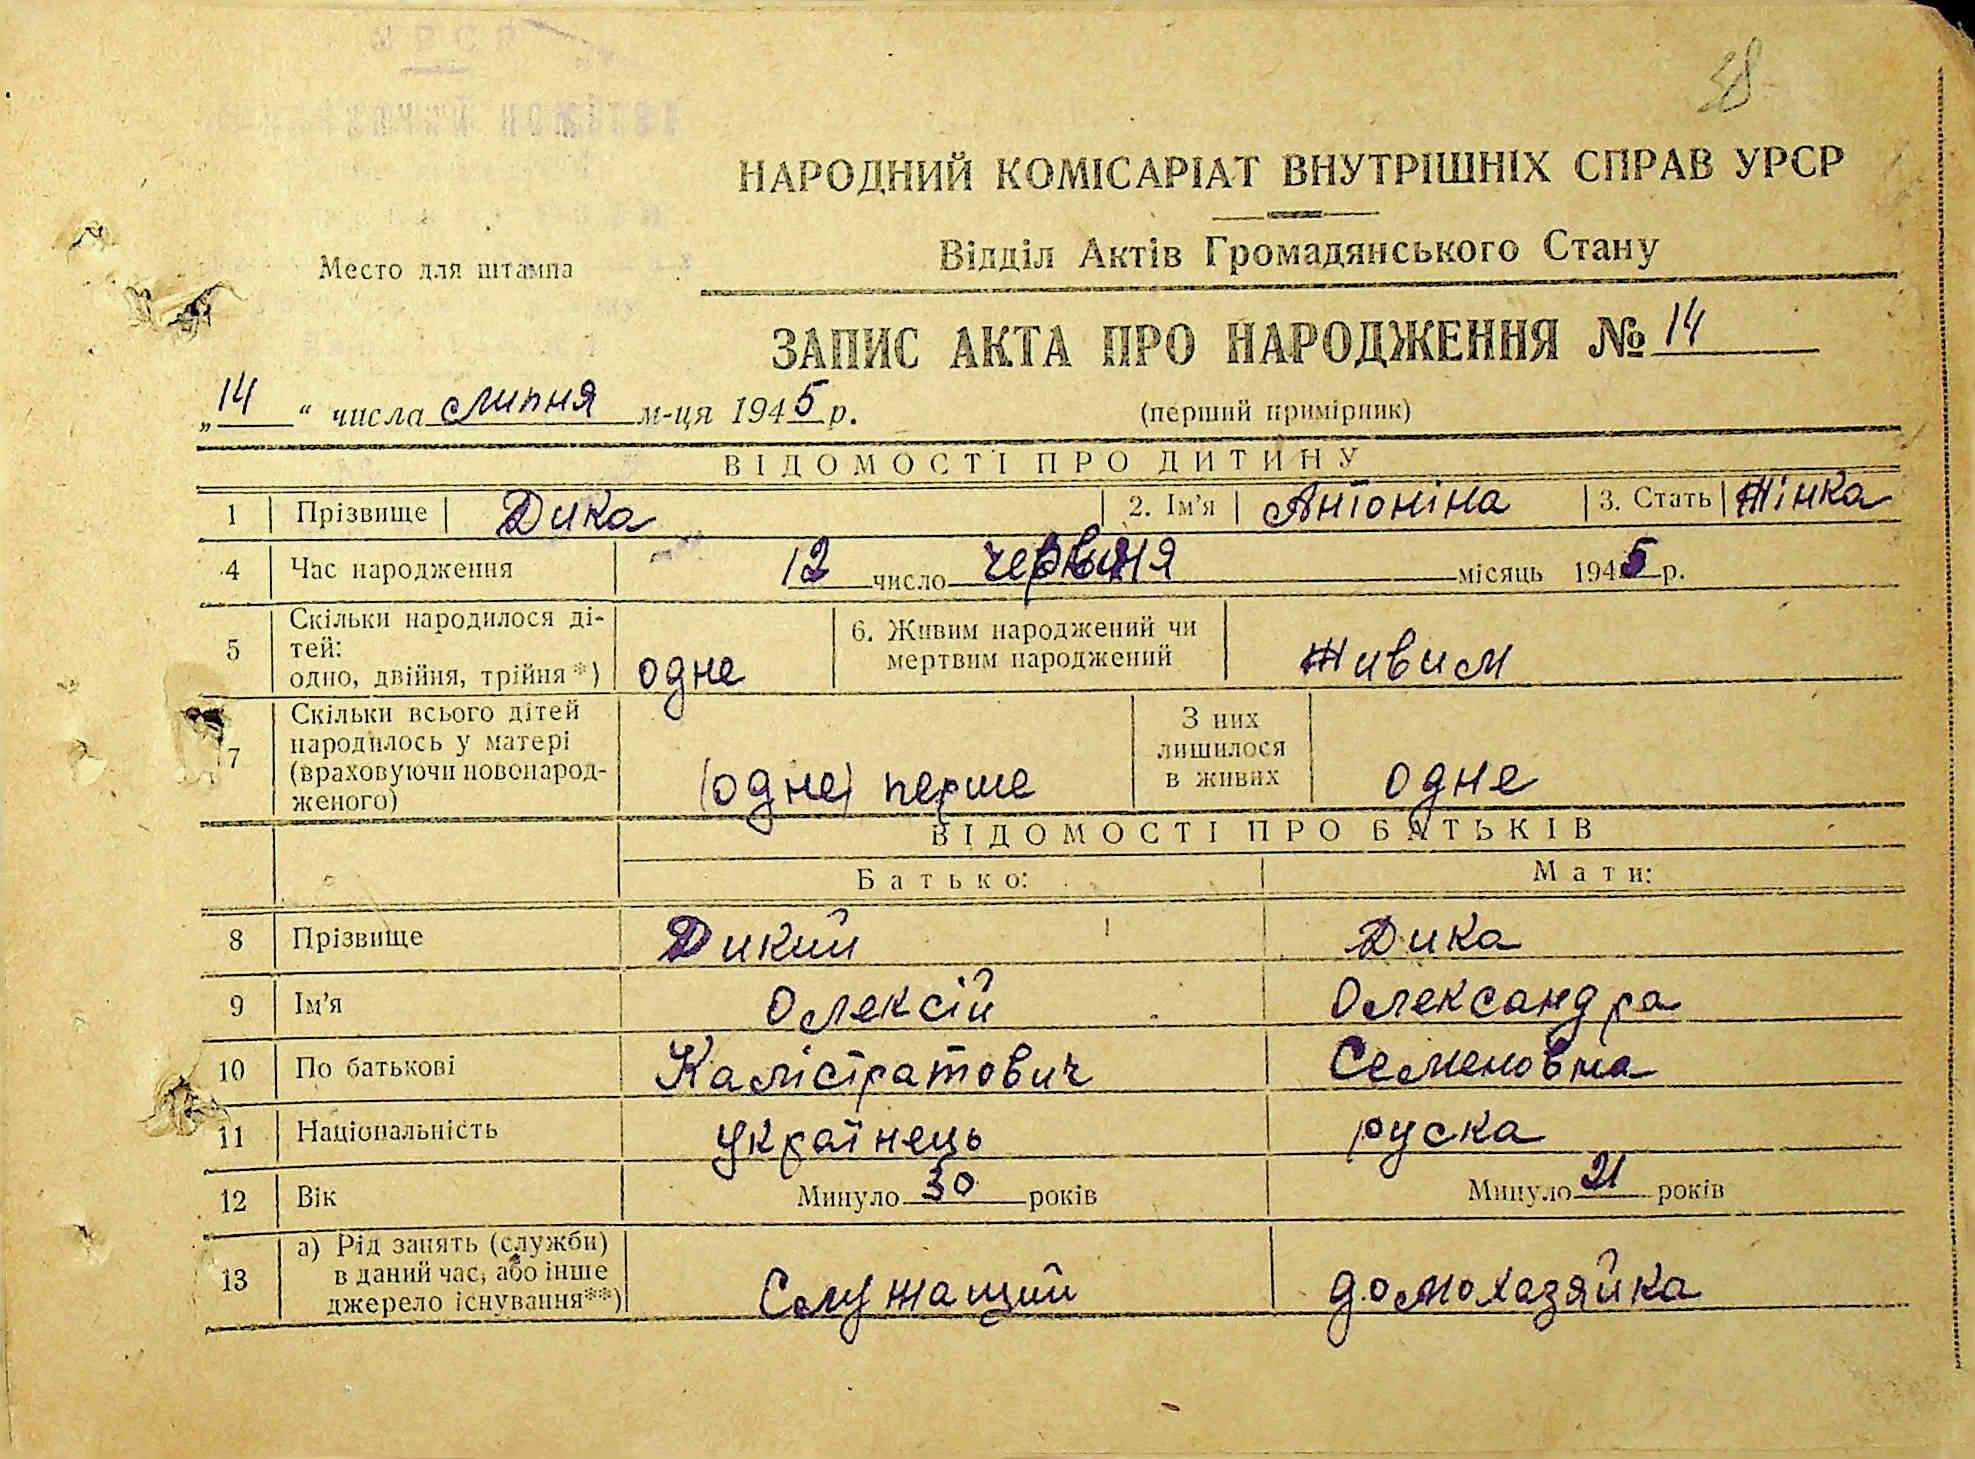 38
НАРОДНИЙ КОМІСАРІАТ ВНУТРІШНІХ СПРАВ УРСР
Место для штампа
Відділ Актів Громадянського Стану
ЗАПИС АКТА ПРО НАРОДЖЕННЯ № 14
„14“ числа липня м-ця 1945 р.
(перший примірник)
ВІДОМОСТІ ПРО ДИТИНУ
1 Прізвище Дика 2. Ім'я Антоніна 3. Стать Жінка
4 Час народження 12 число червня місяць 1945 р.
5 Скільки народилося ді-
тей:
одно, двійня, трійня*) одне
6. Живим народжений чи
мертвим народжений Живим
7 Скільки всього дітей
народилось у матері
(враховуючи новонарод-
женого) (одне) перше
З них
лишилося
в живих одне
ВІДОМОСТІ ПРО БАТЬКІВ
Батько: Мати:
8 Прізвище Дикий Дика
9 Ім'я Олексій Олександра
10 По батькові Калістратович Семеновна
11 Національність українець руска
12 Вік Минуло 30 років Минуло 21 років
13 а) Рід занять (служби)
в даний час, або інше
джерело існування**) Служащий домохазяйка